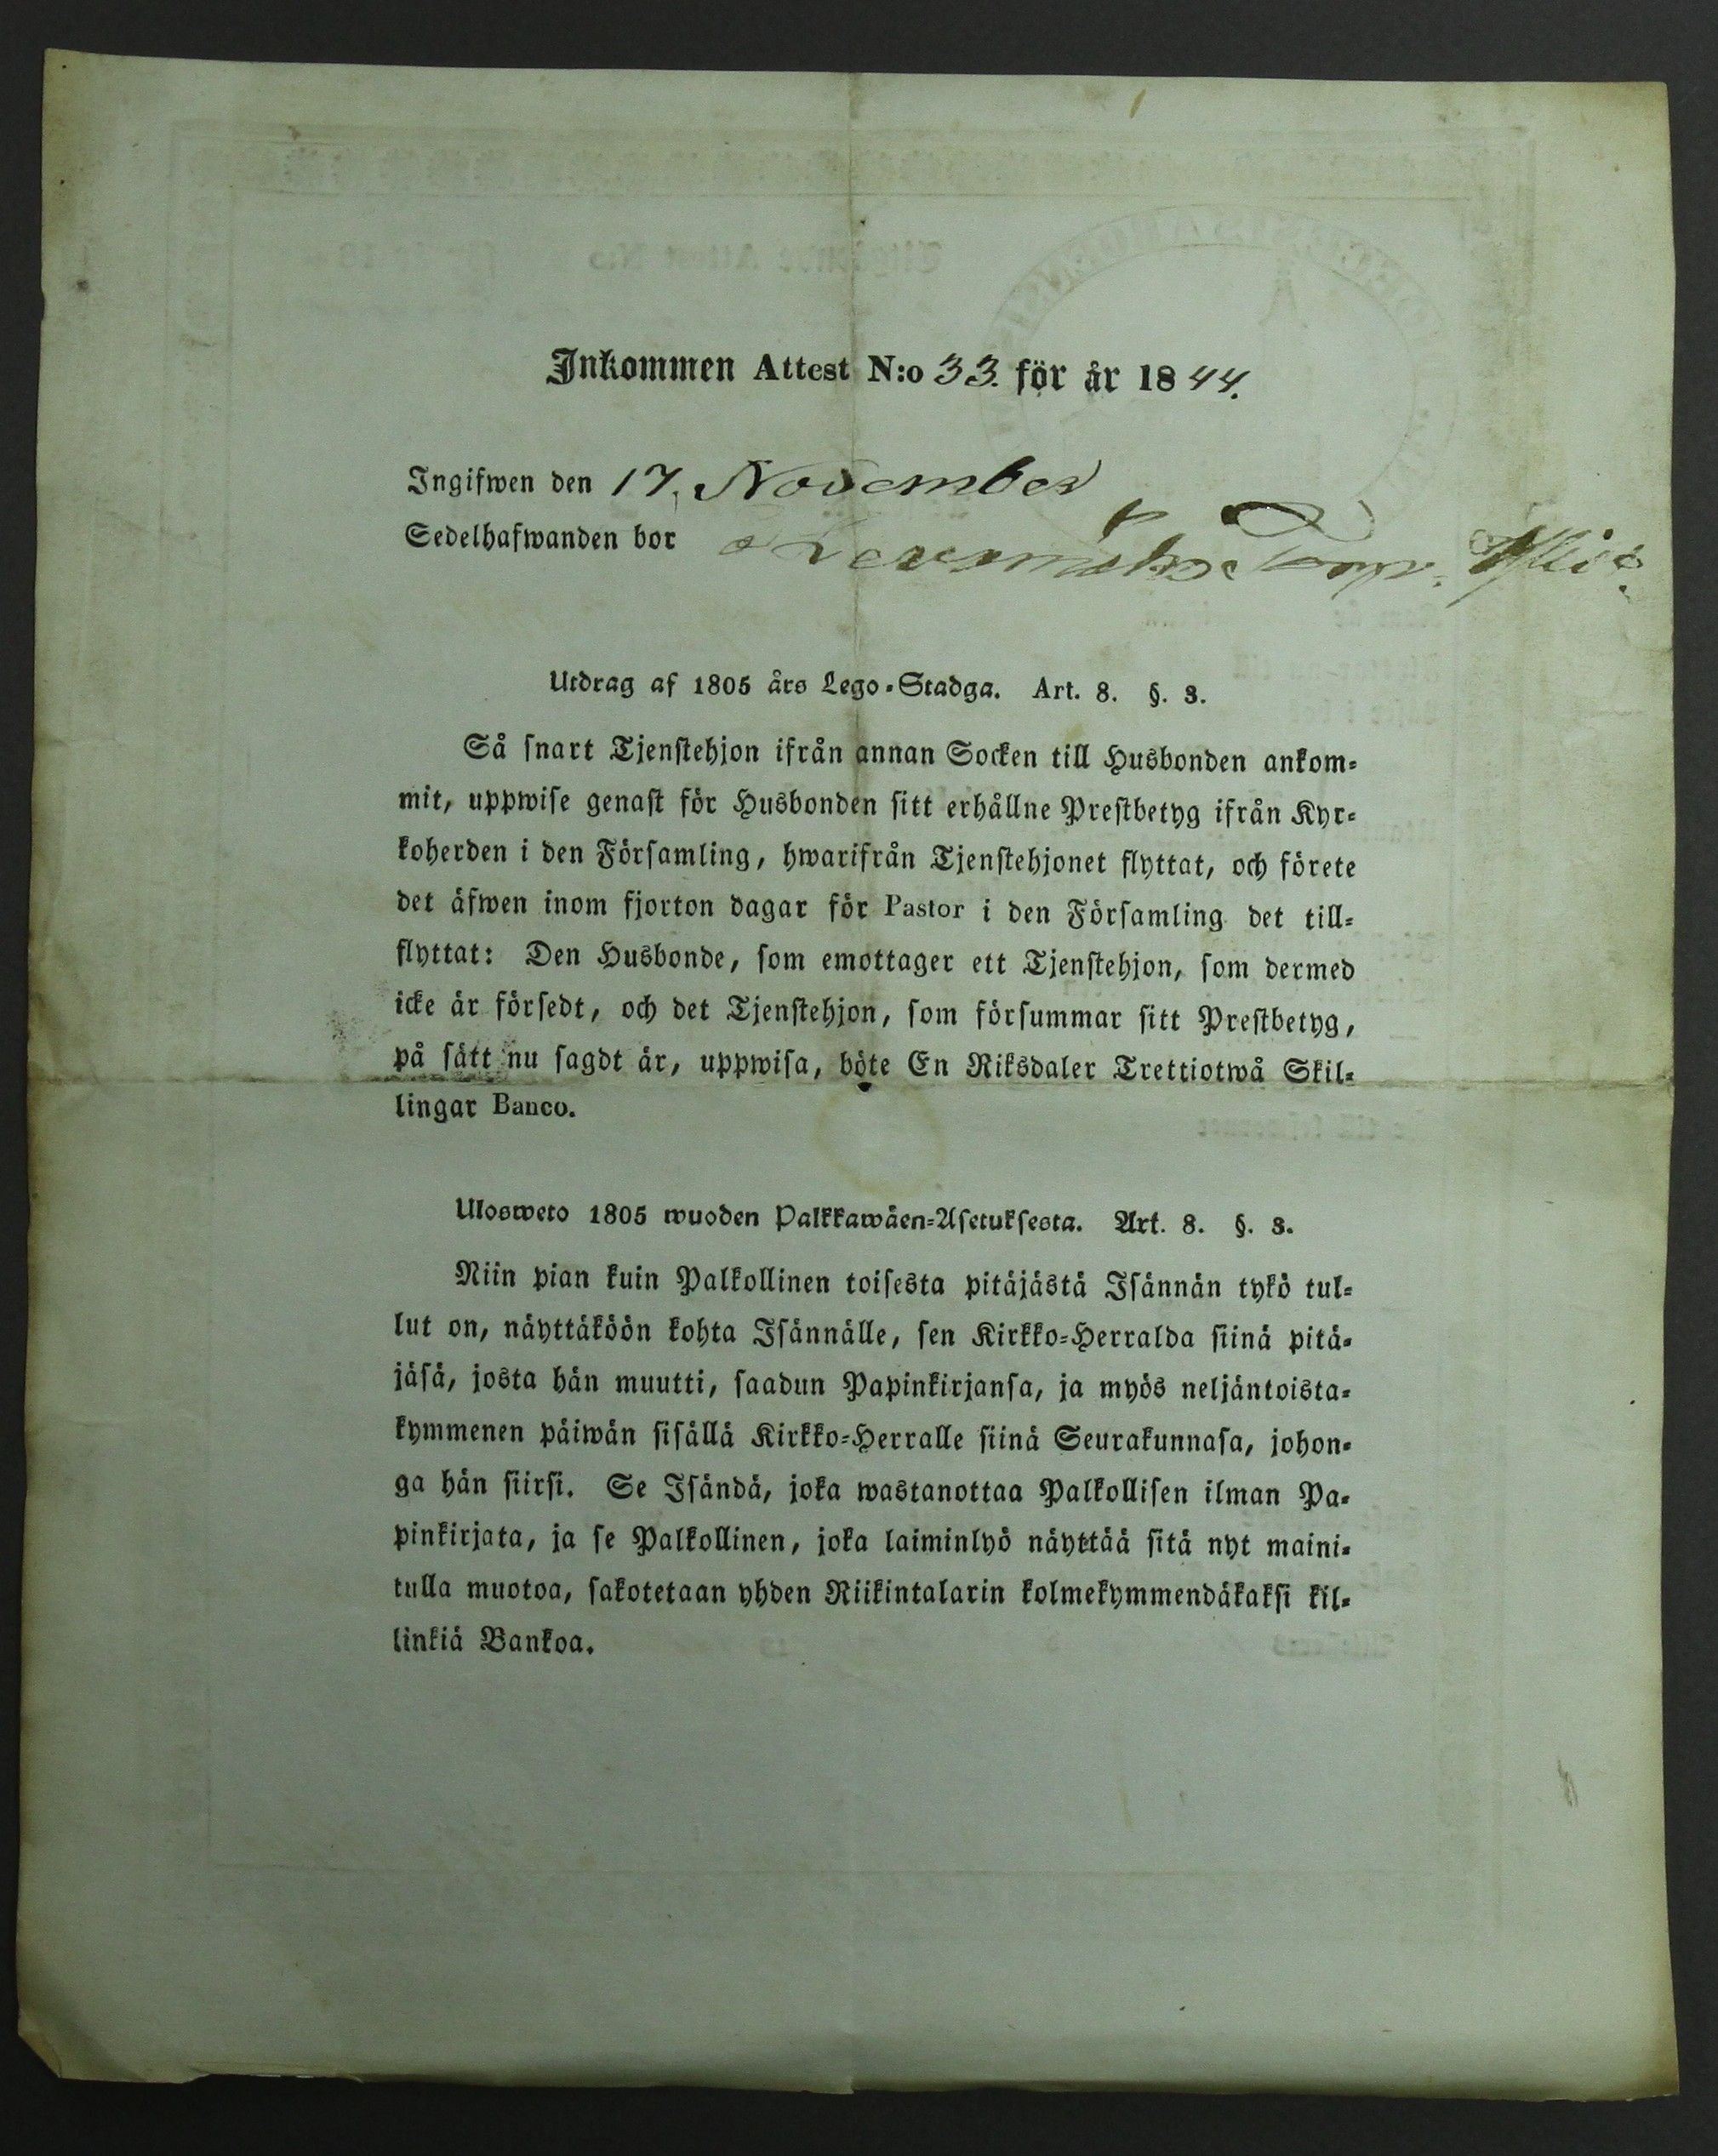 Inkommen Attest N:o 33. för år 1844.
Ingifwen den 17. November
Sedelhafwanden bor
Utdrag af 1805 års Lego-Stadga. Art. 8. §. 3.
Så snart Tjenstehjon ifrån annan Socken till Husbonden ankom-
mit, uppwise genast för Husbonden sitt erhållne Prestbetyg ifrån Kyr-
koherden i den Församling, hwarifrån Tjenstehjonet flyttat, och förete
det äfwen inom fjorton dagar för Pastor i den Församling det till-
flyttat: Den Husbonde, som emottager ett Tjenstehjon, som dermed
icke är försedt, och det Tjenstehjon, som försummar sitt Prestbetyg,
på sätt nu sagdt är, uppwisa, böte En Riksdaler Trettiotwå Skil-
lingar Banco.
Ulosweto 1805 wuoden Palkkawäen-Asetuksesta. Art. 8. §. 3.
Niin pian kuin Palkollinen toisesta pitäjästä Isännän tykö tul-
lut on, näyttäköön kohta Isännälle, sen Kirkko-Herralda siinä pitä-
jäsä, josta hän muutti, saadun Papinkirjansa, ja myös neljäntoista-
kymmenen päiwän sisällä Kirkko-Herralle siinä Seurakunnasa, johon-
ga hän siirsi. Se Isändä, joka wastanottaa Palkollisen ilman Pa-
pinkirjata, ja se Palkollinen, joka laiminlyö näyttää sitä nyt maini-
tulla muotoa, sakotetaan yhden Riikintalarin kolmekymmendäkaksi kil-
linkiä Bankoa.